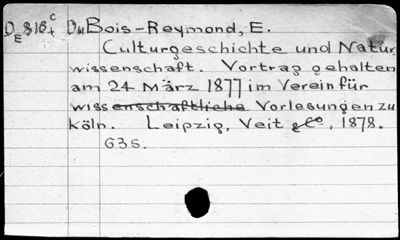 DE 818+c Du Bois-Reymond, E.
Culturgeschichte und Natur
wissenschaft. Vortrag gehalten
am 24 März 1877 im Verein für
wissenschaftliche Vorlesungen zu
köln. Leipzig, Veit & Co, 1878.
63s.